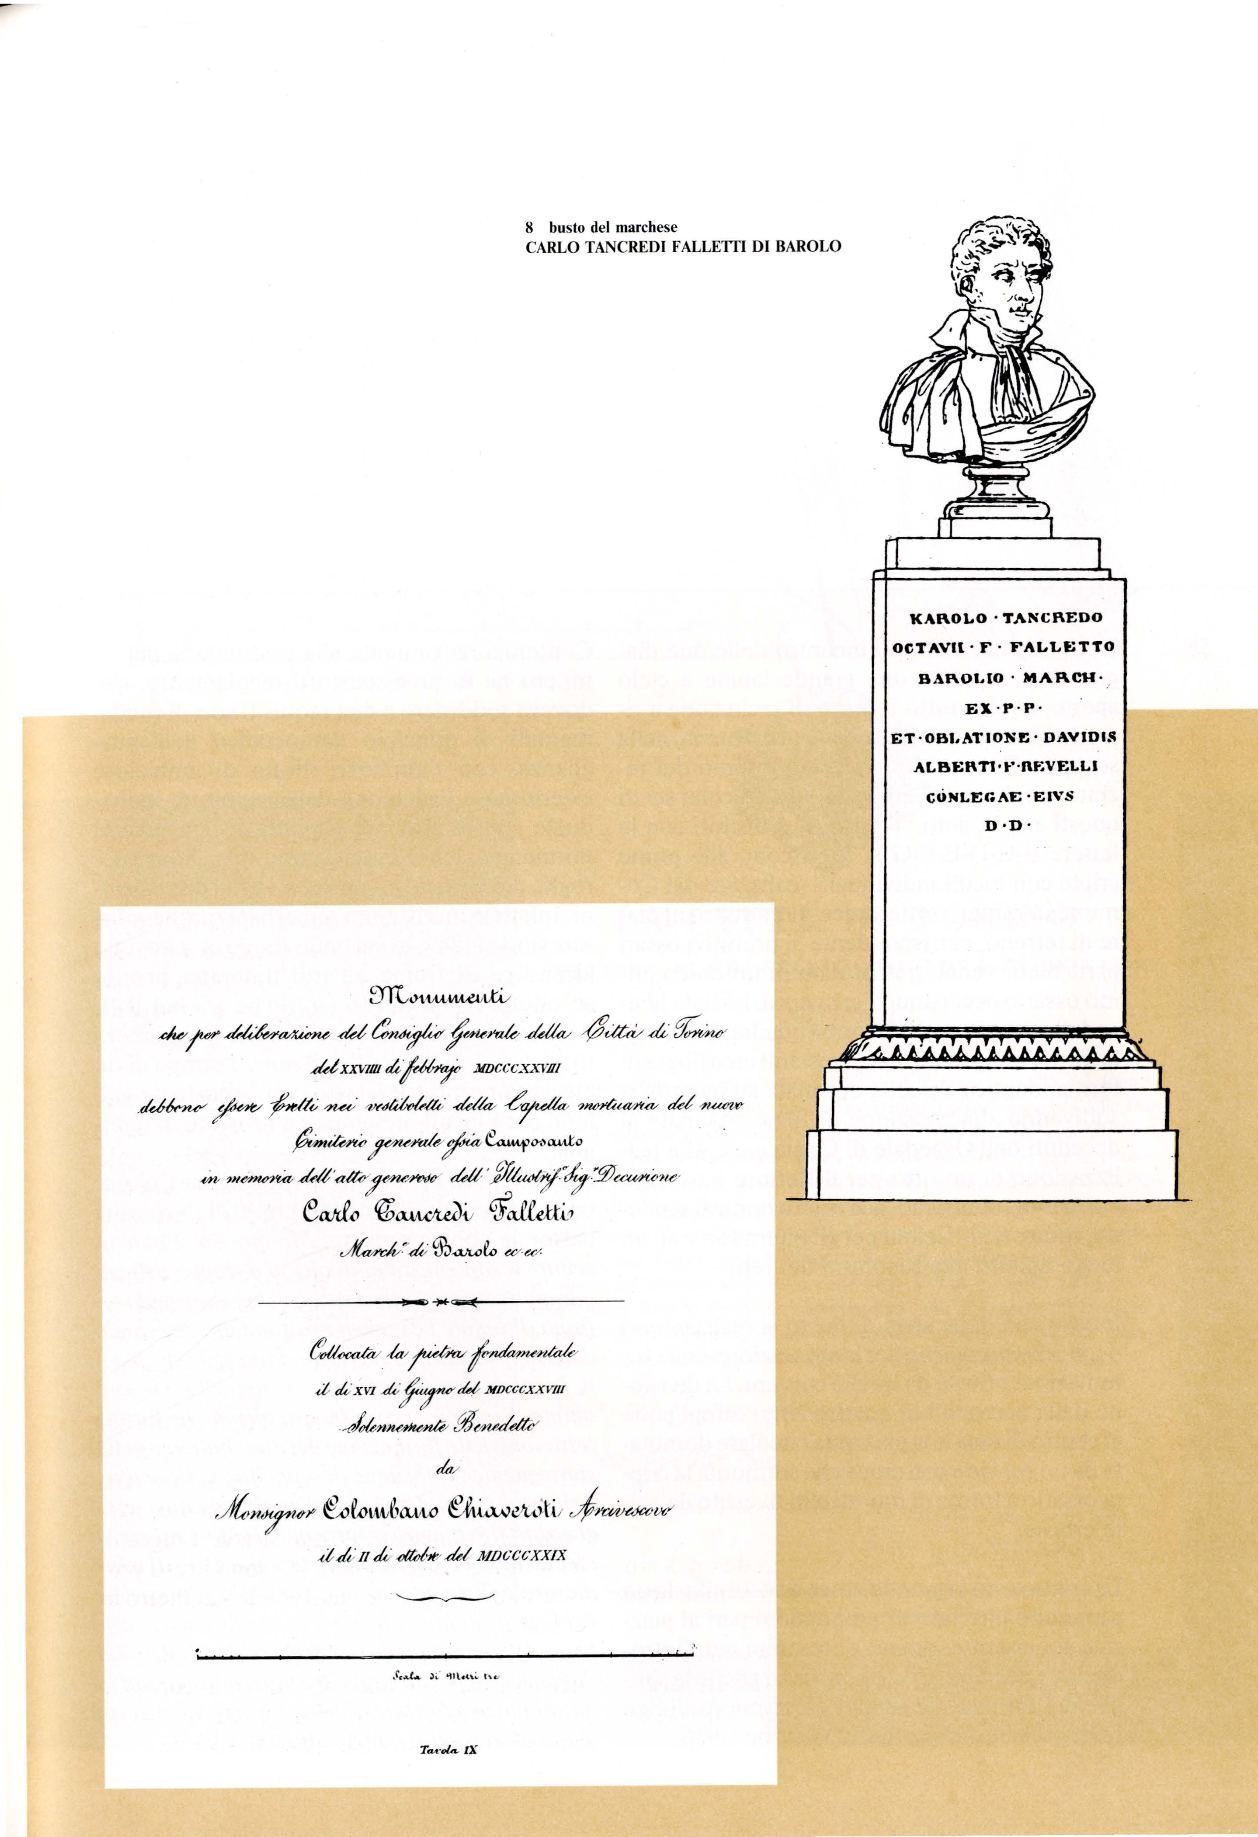 8 busto del marchese
CARLO TANCREDI FALLETTI DI BAROLO
KAROLO · TANCREDO
OCTAVII · F · FALLETTO
BAROLIO · MARCH ·
EX · P · P ·
ET · OBLATIONE · DAVIDIS
ALBERTI · F · REVELLI
CONLEGAE · EIVS
D · D ·
Monumenti
che per deliberazione del Consiglio Generale della Città di Torino
del XXVIIII di febbrajo MDCCCXXVIII
debbono essere Eretti nei vestiboletti della Capella mortuaria del nuovo
Cimiterio generale ossia Camposanto
in memoria dell'atto generoso dell' Illustris.º Sig.r Decurione
Carlo Tancredi Falletti
March.e di Barolo ec·ec·
Collocata la pietra fondamentale
il di XVI di Giugno del MDCCCXXVIII
Solennemente Benedetto
da
Monsignor Colombano Chiaveroti Arcivescovo
il di II di ottobre del MDCCCXXIX
0 3
Scala di Metri tre
Tavola IX